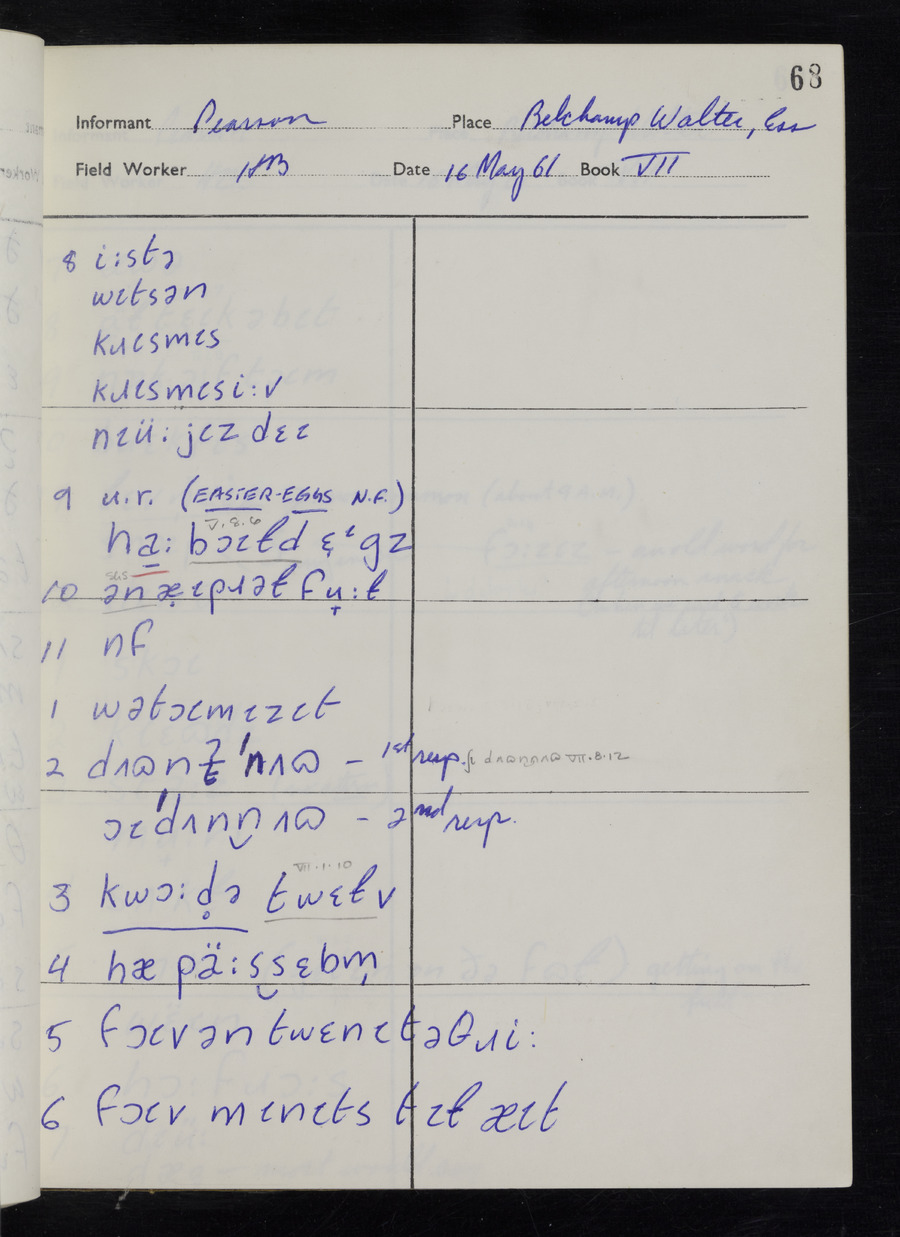 68
Informant Pearson Place Belchamp Walter, Ess
Field Worker HB Date 16 May 61 Book VII
8 i:stə
wɩtsən
kɹɩsmɩs
kɹɩsmɩs i:v
nɪü: jɩz dɛɪ
9 u.r. (EASTER-EGGS N.F.)
V.8.6
ha̠: bɔɪɫd ɛᶦgz
SHS
10 ən æ̣ɪpɹəɫ fụ:ɫ
11 nf
1 wətɔɩmɪzɩt
2 dʌɷnt̵ 'nʌɷ – 1st resp. fr dʌɷnn̥ʌɷ VII.8.12
ɔɪ 'dʌnn̮ʌɷ – 2nd resp.
VII.1.10
3 kwɔ:d̥ə twɛɫv
4 hæ pä:s̮sɛbm̩
5 fɔɩv ən twɛnɪtəθɹi:
6 fɔɩv mɪnɩts tɪɫ æɪt